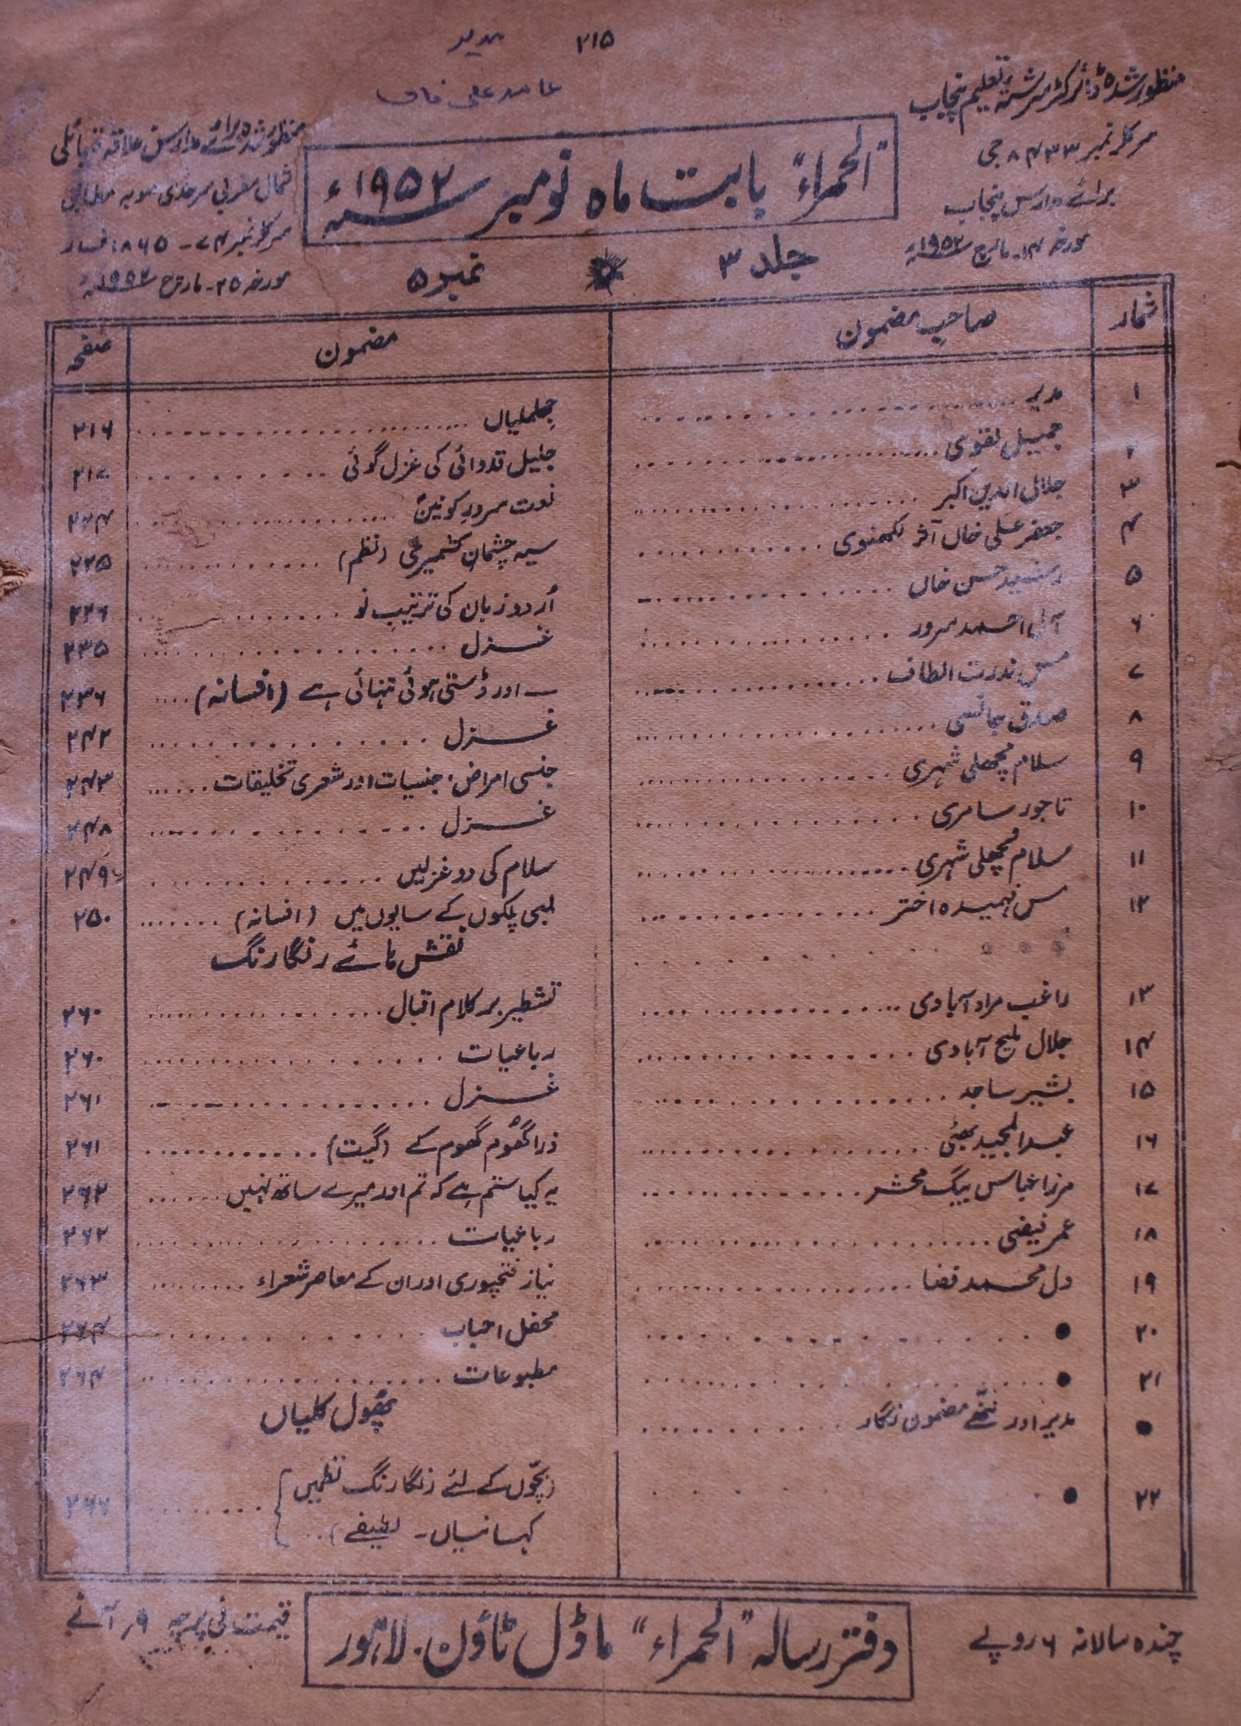 ۲۱۵
مدیر
حامد علی خاں
منظور شدہ ڈائرکٹر سررشتہ تعلیم پنجاب
سرکلر نمبر ۸۴۳۳ جی
برائے مدارس پنجاب
مورخہ ۱۴۔ مارچ ۱۹۵۲ء
"الحمراء" بابت ماہ نومبر ۱۹۵۲ء
جلد ۳
نمبر ۵
منظور شدہ برائے مدارس علاقہ قبائلی
شمال مغربی سرحدی صوبہ
سرکلر نمبر ۷۴۔ ۱۸۶۵
مورخہ ۲۵۔ مارچ ۱۹۵۲ء
شمار صاحبِ مضمون مضمون صفحہ
۱ مدیر جھلملیاں ۲۱۶
۲ جمیل نقوی جلیل قدوائی کی غزل گوئی ۲۱۷
۳ جلال الدین اکبر نعت سرورِ کونینؐ ۲۲۴
۴ جعفر علی خاں اثر لکھنوی سیہ چشمانِ کشمیری (نظم) ۲۲۵
۵ رشید حسن خاں اُردو زبان کی ترتیبِ نو ۲۲۶
۶ آل احمد سرور غزل ۲۳۵
۷ مس ندرت الطاف — اور ڈستی ہوئی تنہائی ہے (افسانہ) ۲۳۶
۸ صدق جائسی غزل ۲۴۲
۹ سلام مچھلی شہری جنسی امراض، جنسیات اور شعری تخلیقات ۲۴۳
۱۰ تاجور سامری غزل ۲۴۸
۱۱ سلام مچھلی شہری سلام کی دو غزلیں ۲۴۹
۱۲ مس فہمیدہ اختر لمبی پلکوں کے سایوں میں (افسانہ) ۲۵۰
نقش ہائے رنگا رنگ
۱۳ راغب مراد آبادی تشطیر بر کلام اقبال ۲۶۰
۱۴ جلال ملیح آبادی رباعیات ۲۶۰
۱۵ بشیر ساجد غزل ۲۶۱
۱۶ عبدالمجید بھٹی ذرا گھُوم گھوم کے (گیت) ۲۶۱
۱۷ مرزا عباس بیگ محشر یہ کیا ستم ہے کہ تم اور میرے ساتھ نہیں ۲۶۲
۱۸ عمر فیضی رباعیات ۲۶۲
۱۹ دل محمد فضا نیاز فتحپوری اور ان کے معاصر شعراء ۲۶۳
۲۰ ● محفل احباب ۲۶۴
۲۱ ● مطبوعات ۲۶۴
پھُول کلیاں
● مدیر اور ننھے مضمون نگار
۲۲ ● (بچّوں کے لئے رنگا رنگ نظمیں
کہانیاں۔ لطیفے) ۲۶۶
چندہ سالانہ ۶ روپے
دفتر رسالہ "الحمراء" ماڈل ٹاؤن۔ لاہور
قیمت فی پرچہ ۹ر آنے